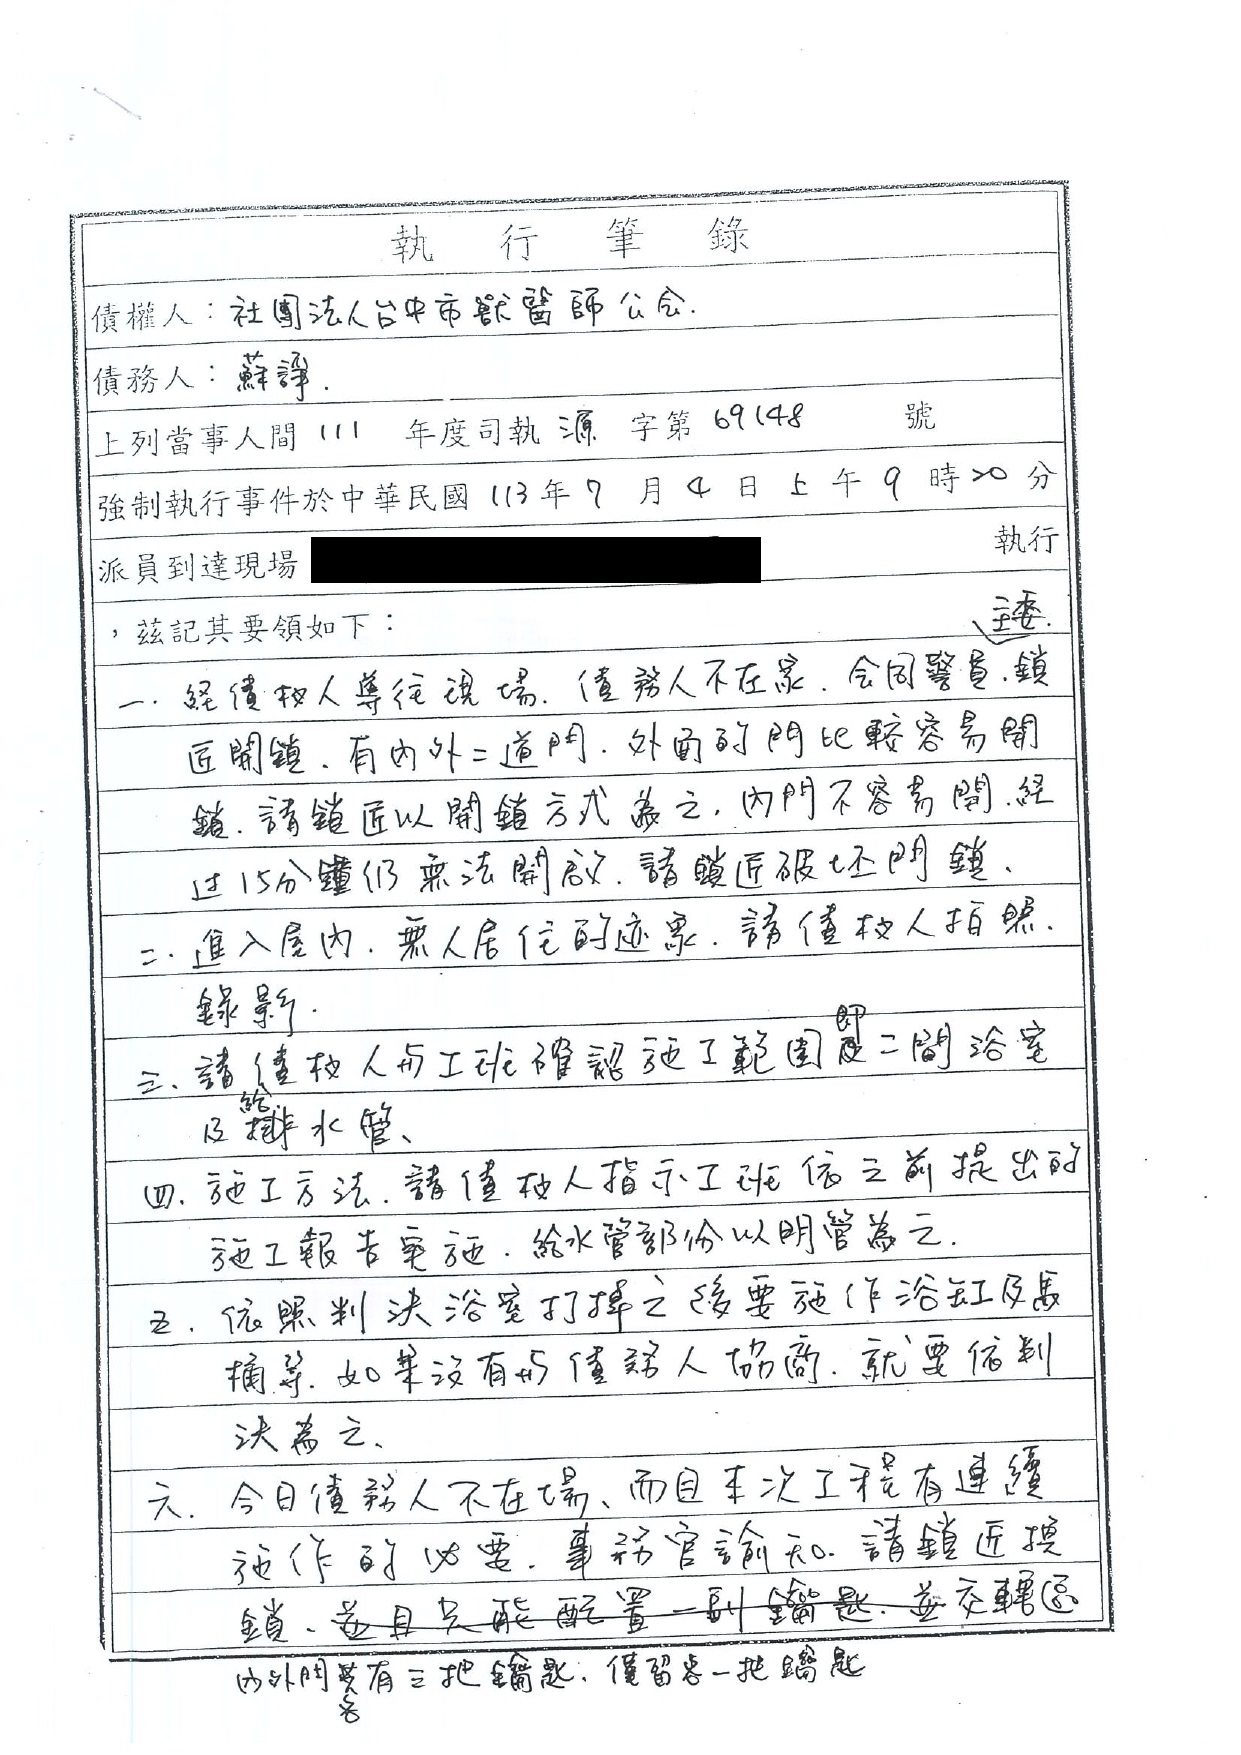 執行筆錄
債權人：社團法人台中市獸醫師公會.
債務人：蘇諍.
上列當事人間 111 年度司執 源 字第 69148 號
強制執行事件於中華民國 113 年 7 月 4 日 上 午 9 時 20 分
派員到達現場 執行
，茲記其要領如下：
主委.
一. 經債权人導往現場. 債務人不在家. 会同警員.鎖
匠開鎖. 有內外二道門. 外面的門比較容易開
鎖. 請鎖匠以開鎖方式為之. 內門不容易開.経
过15分鐘仍無法開啟. 請鎖匠破坏門鎖.
二. 進入屋內. 無人居住的迹象. 請債权人拍照.
錄影.
三. 請債权人与工班確認施工範圍即二間浴室
及給.排水管.
四. 施工方法. 請債权人指示工班依之前提出的
施工報告實施. 給水管部份以明管為之.
五. 依照判決浴室打掉之後要施作浴缸及馬
桶等. 如果沒有与債務人協商. 就要依判
決為之.
六. 今日債務人不在場、而且本次工程有連續
施作的必要. 事務官諭知. 請鎖匠換
鎖. 並且只能配置一副鑰匙. 並交轄區
內外門各有三把鑰匙. 僅留各一把鑰匙